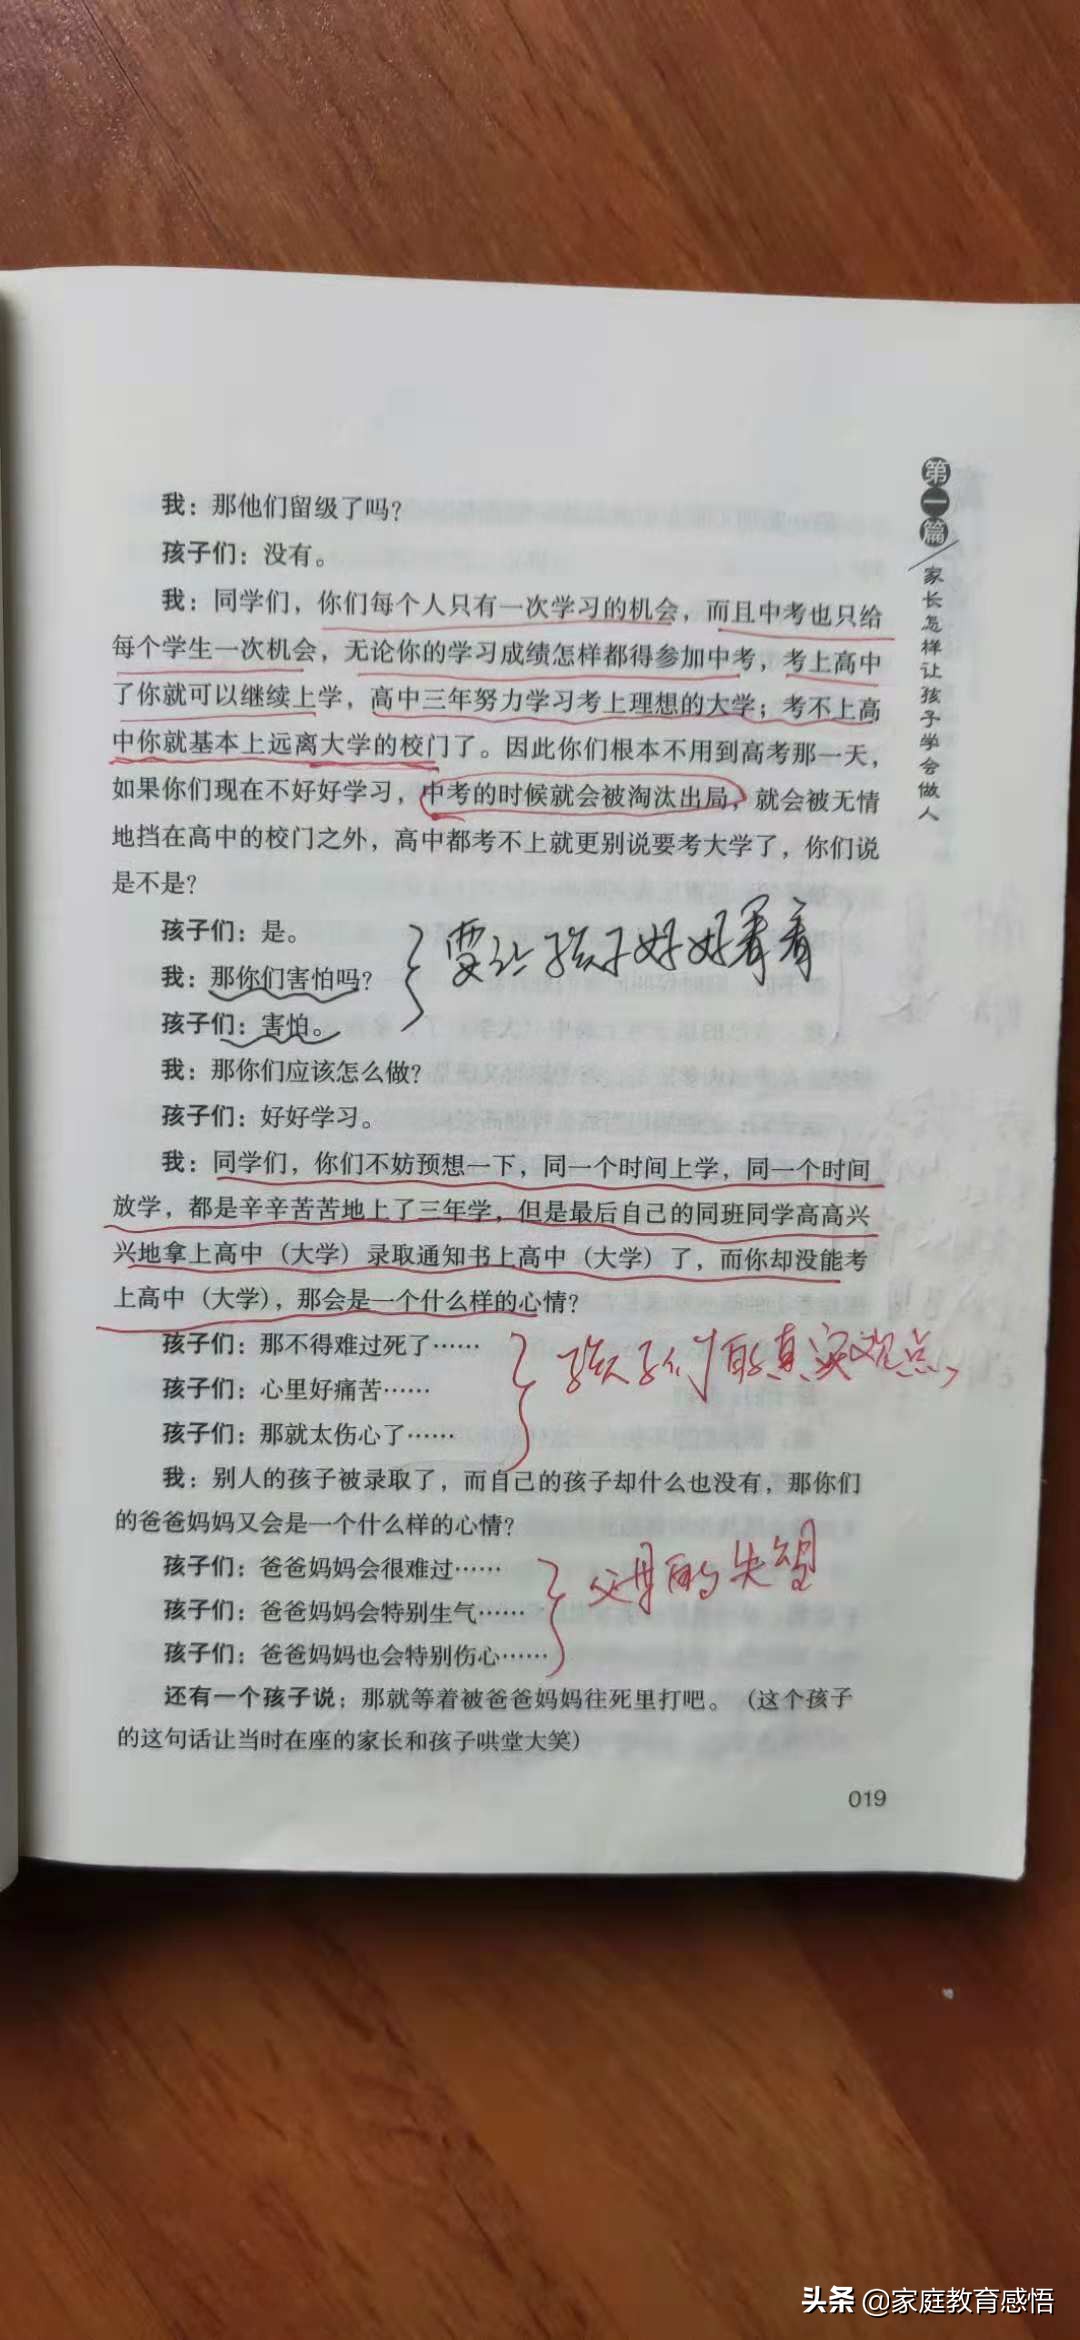 第一篇
家长怎样让孩子学会做人
我：那他们留级了吗？
孩子们：没有。
我：同学们，你们每个人只有一次学习的机会，而且中考也只给
每个学生一次机会，无论你的学习成绩怎样都得参加中考，考上高中
了你就可以继续上学，高中三年努力学习考上理想的大学；考不上高
中你就基本上远离大学的校门了。因此你们根本不用到高考那一天，
如果你们现在不好好学习，中考的时候就会被淘汰出局，就会被无情
地挡在高中的校门之外，高中都考不上就更别说要考大学了，你们说
是不是？
孩子们：是。
我：那你们害怕吗？
孩子们：害怕。
要让孩子好好看看
我：那你们应该怎么做？
孩子们：好好学习。
我：同学们，你们不妨预想一下，同一个时间上学，同一个时间
放学，都是辛辛苦苦地上了三年学，但是最后自己的同班同学高高兴
兴地拿上高中（大学）录取通知书上高中（大学）了，而你却没能考
上高中（大学），那会是一个什么样的心情？
孩子们：那不得难过死了……
孩子们：心里好痛苦……
孩子们：那就太伤心了……
孩子们的真实观点，
我：别人的孩子被录取了，而自己的孩子却什么也没有，那你们
的爸爸妈妈又会是一个什么样的心情？
孩子们：爸爸妈妈会很难过……
孩子们：爸爸妈妈会特别生气……
孩子们：爸爸妈妈也会特别伤心……
父母的失望
还有一个孩子说：那就等着被爸爸妈妈往死里打吧。（这个孩子
的这句话让当时在座的家长和孩子哄堂大笑）
019
头条 @家庭教育感悟